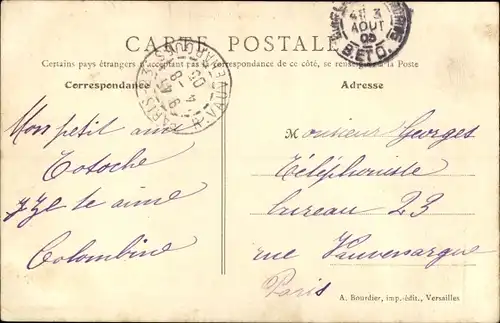 CARTE POSTALE
Certains pays étrangers n'acceptant pas la correspondance de ce côté, se renseigner à la Poste
Correspondance
Adresse
3
AOUT
05
PARIS
Mon petit ami
Totoche
Je te aime
Colombine
Monsieur Georges
Téléphoniste
bureau 23
rue Vauvenargue
Paris
A. Bourdier, imp.-édit., Versailles